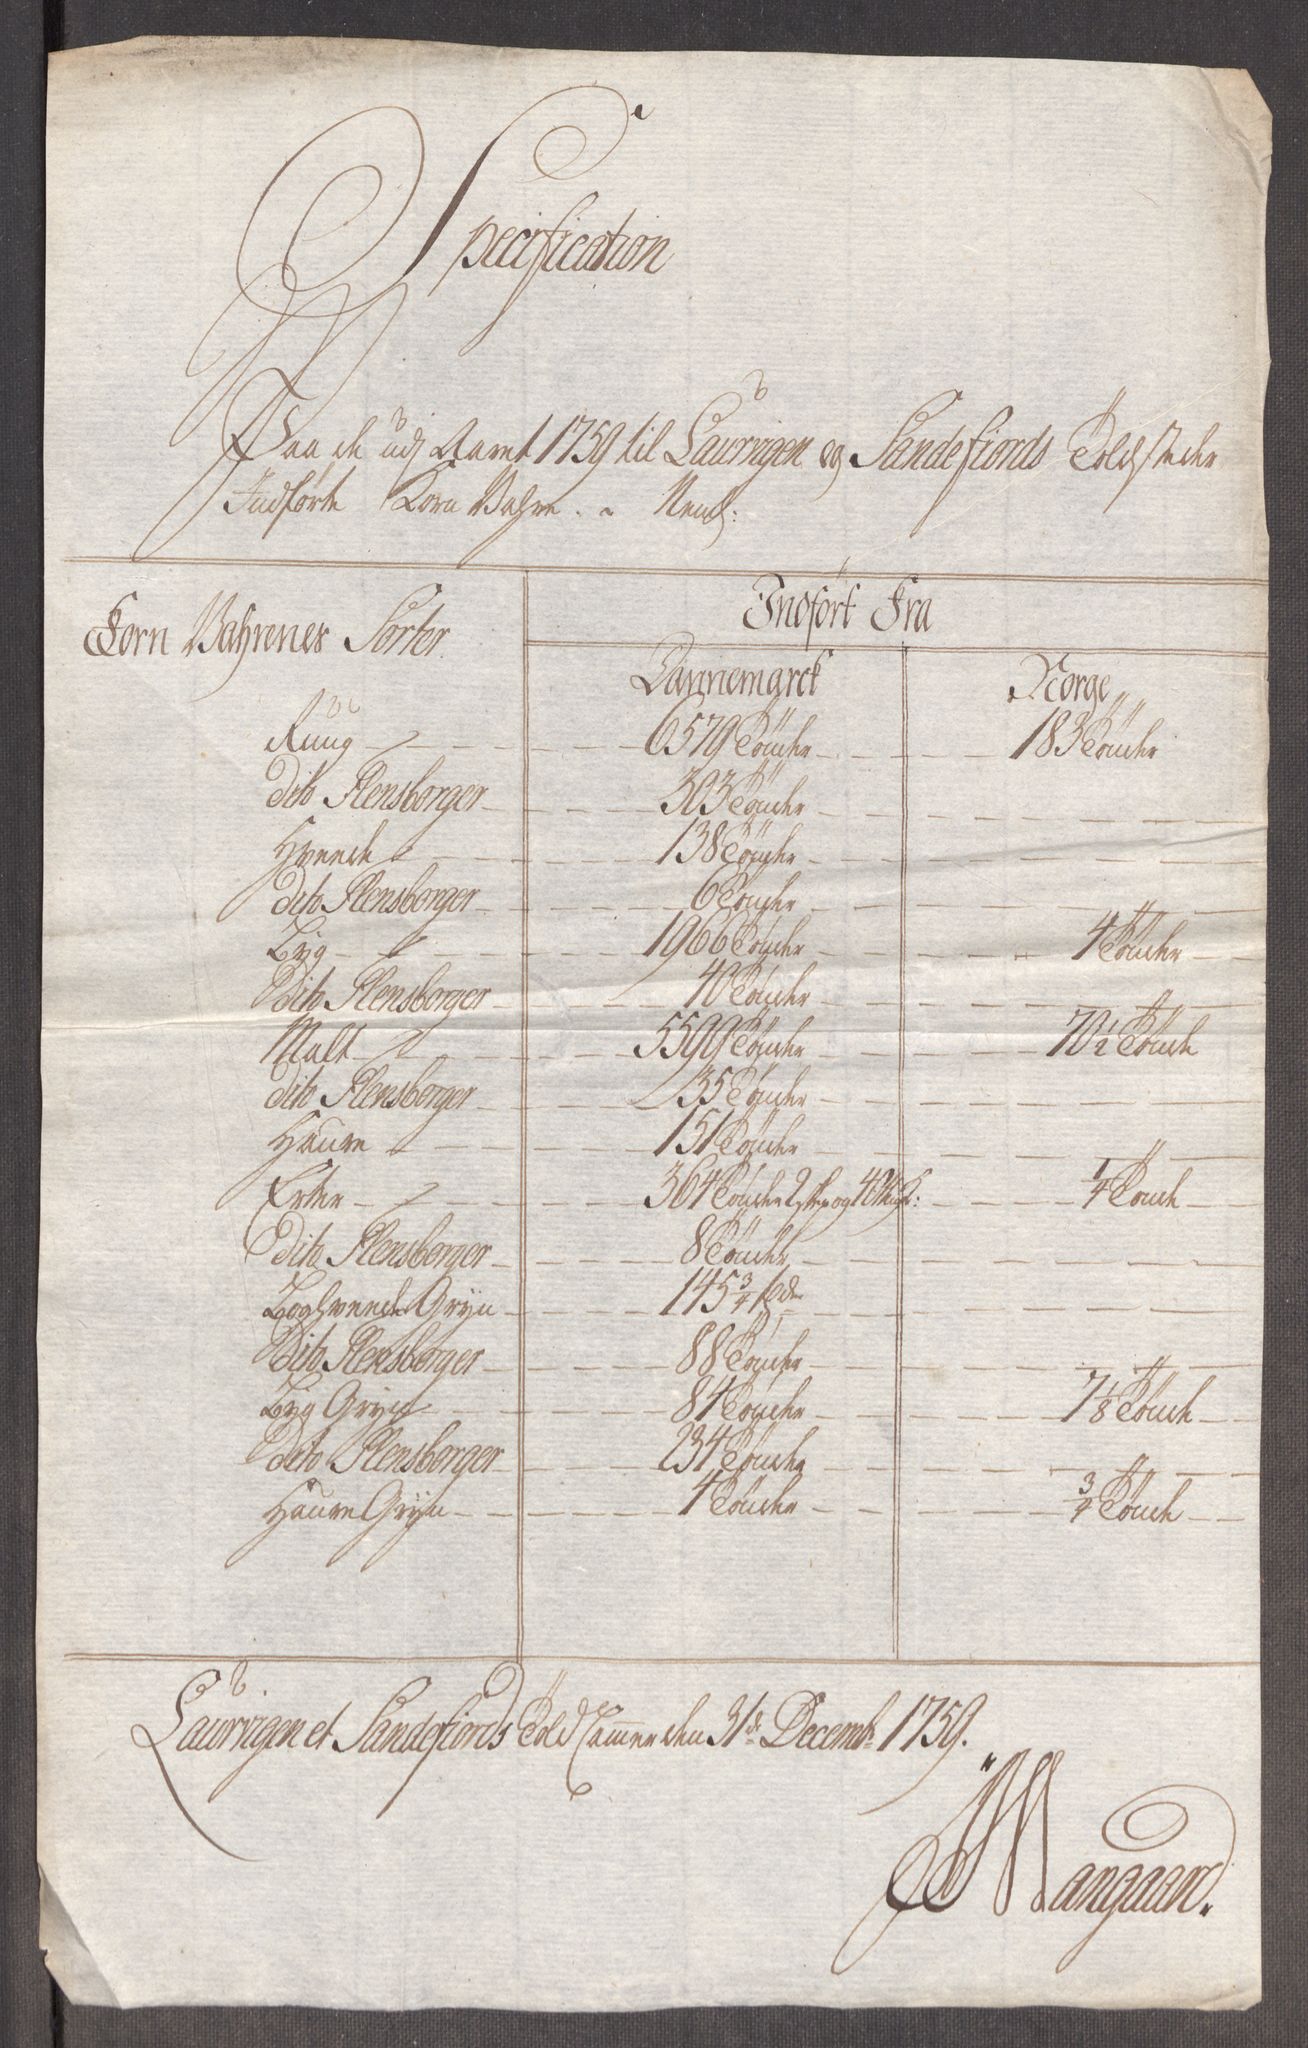 Specification
Paa de udj Aaret 1759 til Laurvigen og Sandefiords Toldsteder
Indførte Korn Vahre. Neml:
Korn Vahrenes Sorter.
Indført Fra
Dannemarck
Norge
Rüug 6579 Tönder 183 Tönder
dito Flensborger 303 Tönder
Hvede 138 Tönder
dito Flensborger 6 Tönder
Byg 1966 Tönder 4 Tönder
dito Flensborger 40 Tönder
Malt 5599 Tönder 70 1/2 Tönde
dito Flensborger 235 Tönder
Haure 151 Tönder
Erter 364 Tönder 2 skp og 1/4 Tönde
dito Flensborger 8 Tönder
Boghvede Gryn 145 3/4 Tdr
dito Flensborger 88 Tönder
Byg Gryn 84 Tönder 7 1/8 Tönde
dito Flensborger 234 Tönder
Haure Gryn 4 Tönder 3/4 Tönde
Laurvigen et Sandefiords Told Cammer den 31de Decembr 1759.
Mangaard.